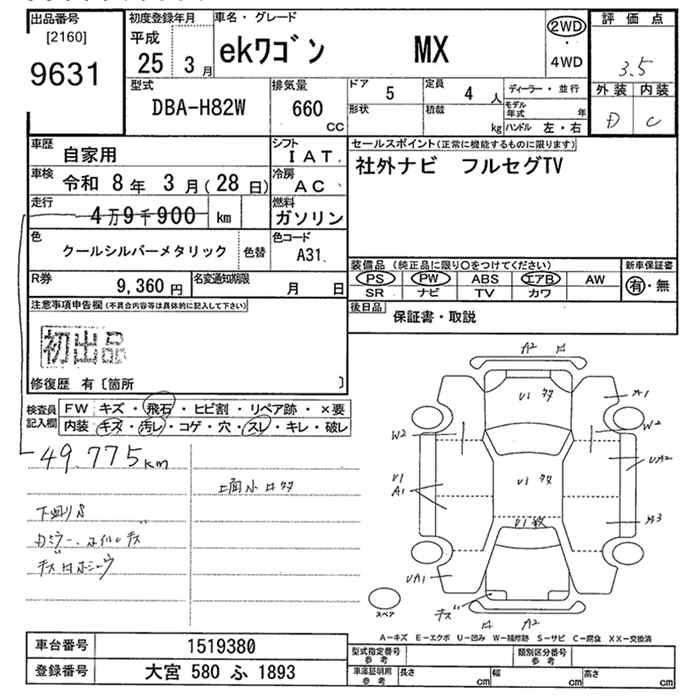 出品番号 初度登録年月 車名・グレード 2WD・4WD 評価点
[2160]
9631
平成 25年 3月
ekワゴン MX
3.5
外装 内装
D C
型式 排気量 ドア 5 定員 4人 ディーラー・並行
DBA-H82W 660cc
形状 積載 kg モデル年式 年
ハンドル 左・右
車歴 自家用 シフト IAT.
車検 令和 8年 3月(28日) 冷房 AC
走行 4万9千900 km 燃料 ガソリン
色 クールシルバーメタリック 色替 色コード A31
R券 9,360円 名変通知期限 月 日
セールスポイント(正常に機能するものに限ります)
社外ナビ フルセグTV
装備品(純正品に限り〇をつけてください) 新車保証書
PS PW ABS エアB AW 有・無
SR ナビ TV カワ
後日品 保証書・取説
注意事項申告欄(不具合内容等は具体的に記入して下さい)
初出品
修復歴 有〔箇所 〕
検査員記入欄
FW キズ・飛石・ヒビ割・リペア跡・×要
内装 キズ・汚レ・コゲ・穴・スレ・キレ・破レ
49.775km
下回りS
A2
U1
A1
W2
W2
UA2
U1
U1
A1
A3
UA1
キズ
A2
スペア
A－キズ E－エクボ U－凹み W－補修跡 S－サビ C－腐食 XX－交換済
車台番号 1519380
登録番号 大宮 580 ふ 1893
型式指定番号 参考 類別区分番号 参考
車庫証明用 参考 長さ cm 幅 cm 高さ cm